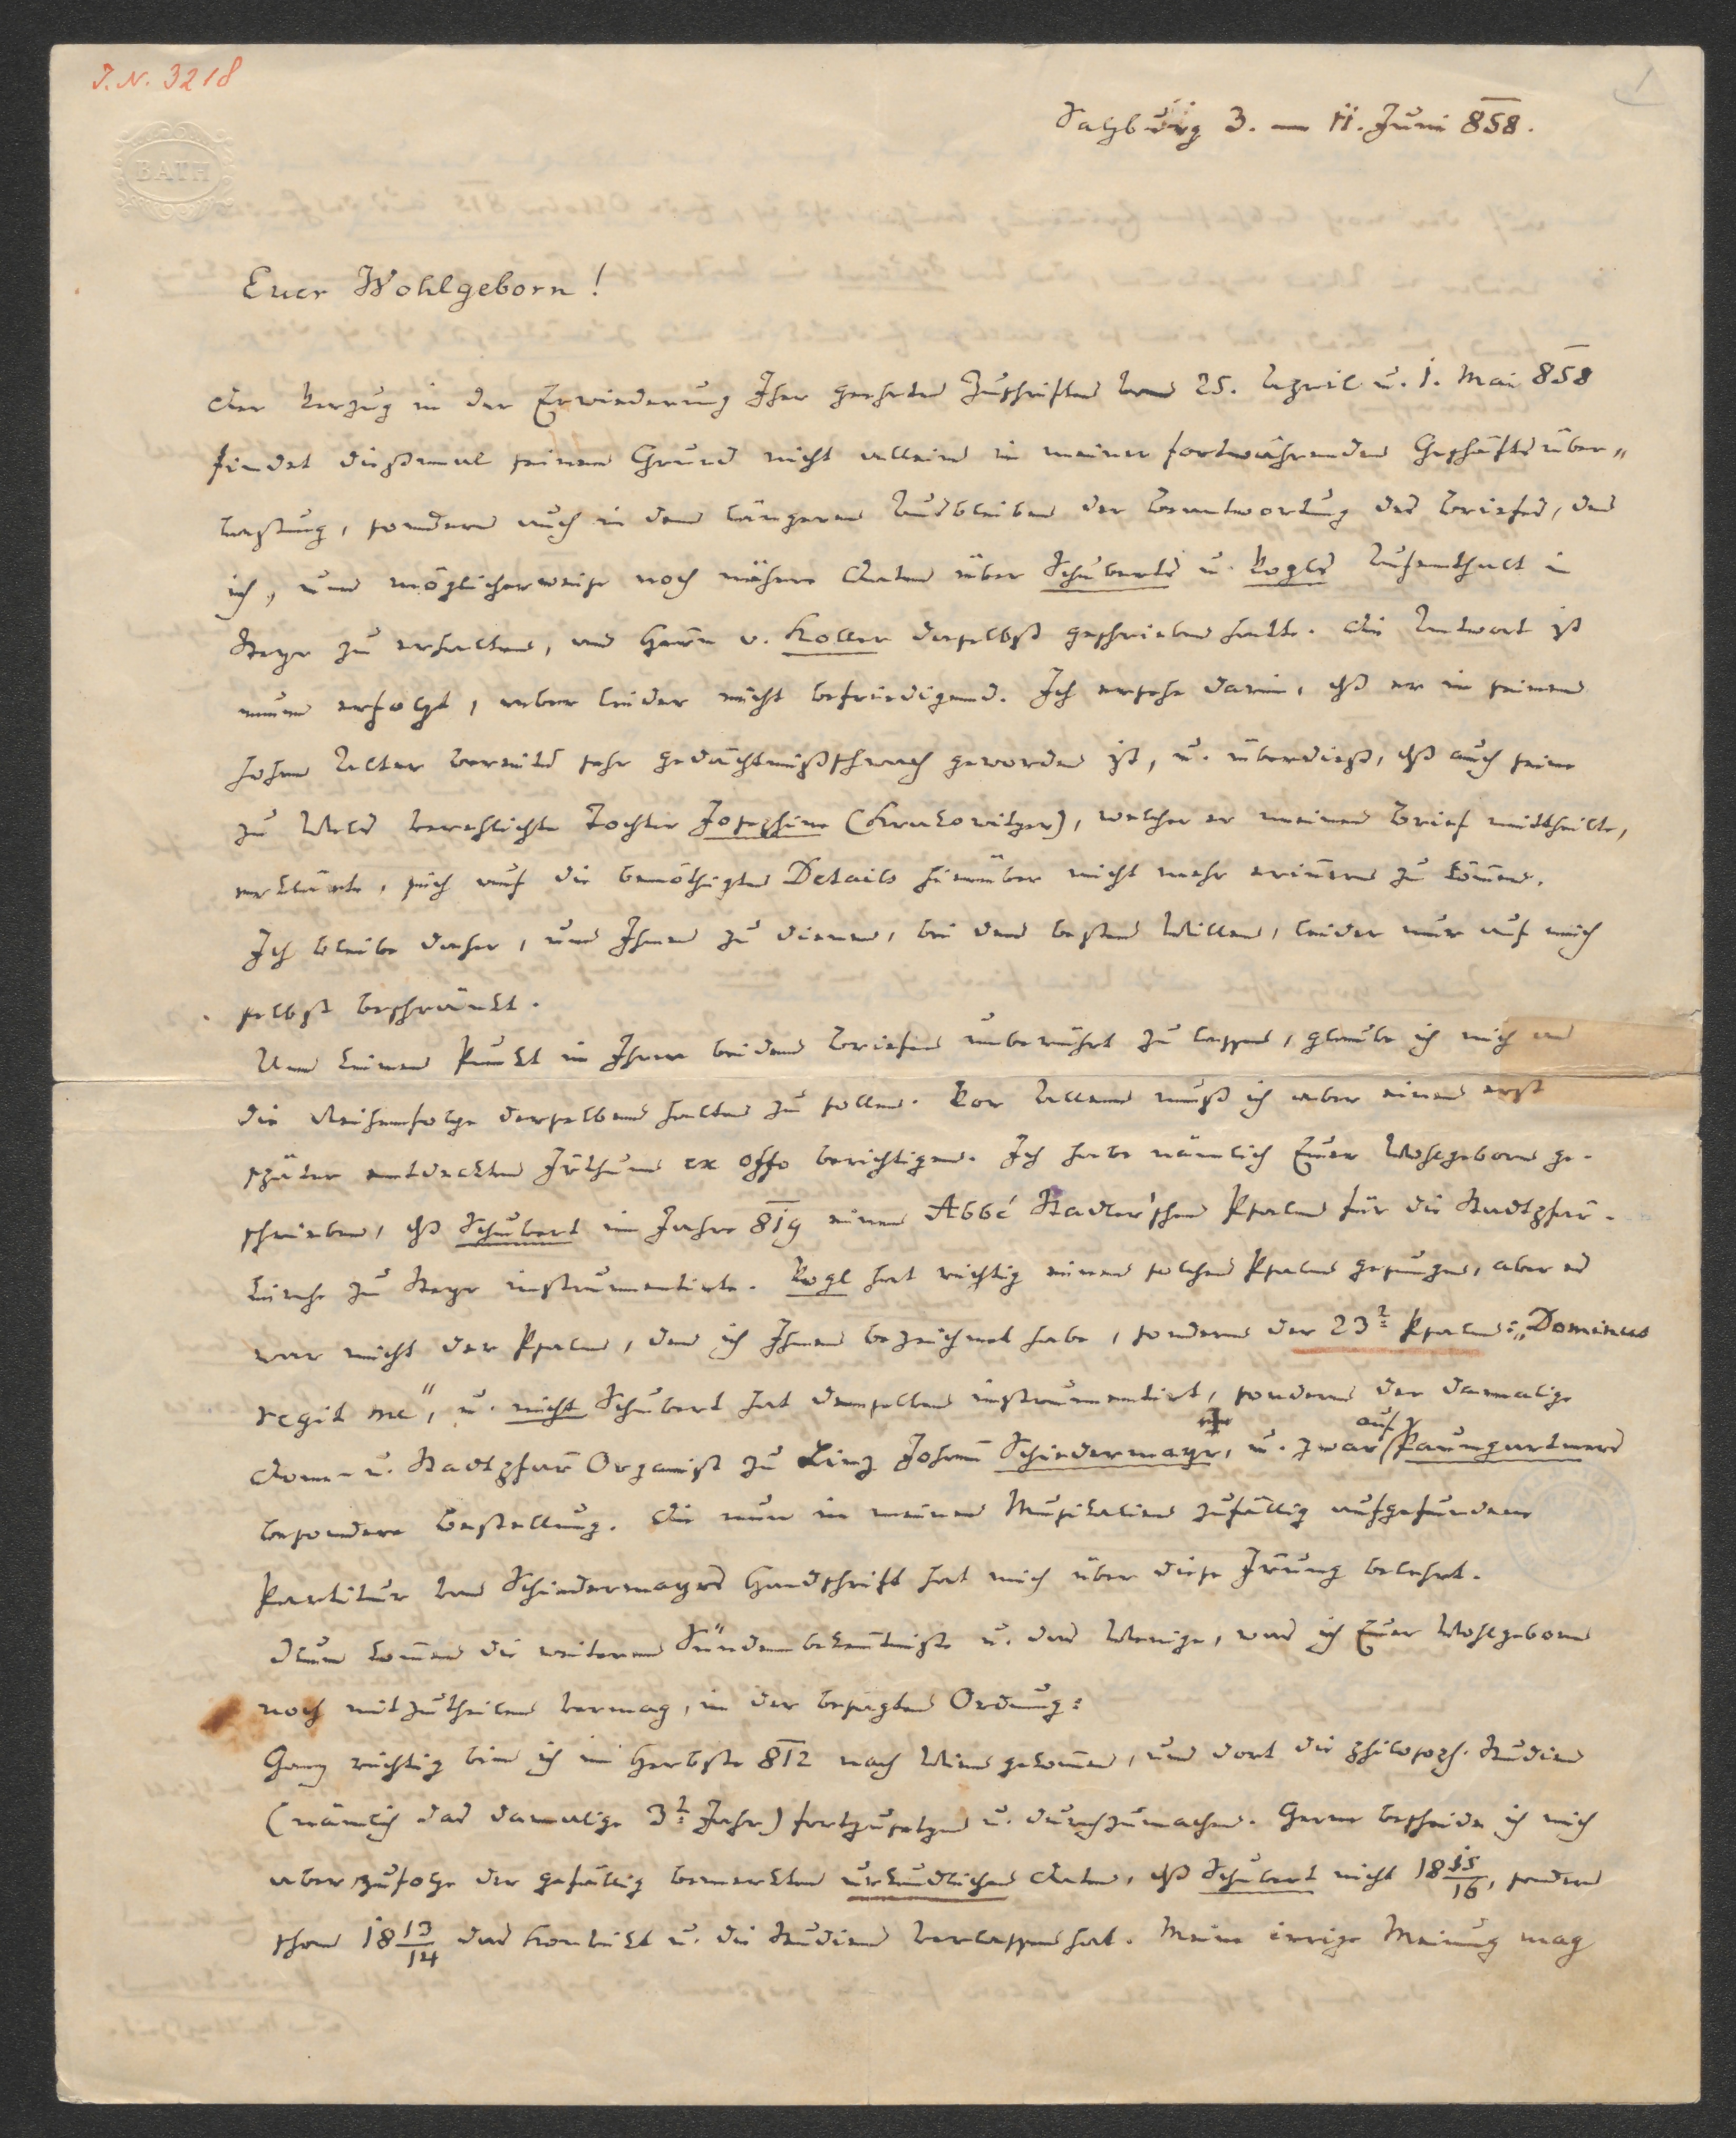 J. N. 3218
1
BATH
Salzburg 3. — 11. Juni 858.
Euer Wohlgeborn!
Der Verzug in der Erwiederung Ihrer geehrten Zuschriften vom 25. April u. 1. Mai 858
findet dießmal seinen Grund nicht allein in meiner fortwährenden Geschäftsüber„
lastung, sondern auch in dem längeren Ausbleiben der Beantwortung des Briefes, den
ich, um möglicherweise noch nähere Daten über Schuberts u. Vogls Aufenthalt in
Steyr zu erhalten, an Herrn v. Koller daselbst geschrieben hatte. Die Antwort ist
nun erfolgt, aber leider nicht befriedigend. Ich ersehe darin, dß er in seinem
hohen Alter bereits sehr gedächtnißschwach geworden ist, u. überdieß, dß auch seine
zu Wels verehlichte Tochter Josephine (Krakowitzer), welcher er meinen Brief mittheilte,
erklärte, sich auf die benöthigten Details hierüber nicht mehr erinnern zu können.
Ich bleibe daher, um Ihnen zu dienen, bei dem besten Willen, leider nur auf mich
selbst beschränkt.
Um keinen Punkt in Ihren beiden Briefen unberührt zu lassen, glaube ich mich an
die Reihenfolge derselben halten zu sollen. Vor Allem muß ich aber einen erst
später entdeckten Irthum ex offo berichtigen. Ich habe nämlich Euer Wohlgeborn ge-
schrieben, dß Schubert im Jahre 819 einen Abbé Stadler'schen Psalm für die Stadtpfar-
kirche zu Steyr instrumentirte. Vogl hat richtig einen solchen Psalm gesungen, aber es
war nicht der Psalm, den ich Ihnen bezeichnet habe, sondern der 23t Psalm: „Dominus
regit me“, u. nicht Schubert hat denselben instrumentirt, sondern der damalige
Dom- u. Stadtpfarr Organist zu Linz Johann Schiedermayr, u. zwar auf Paumgartners
besondere Bestellung. Die nun in meinen Musikalien zufällig aufgefundene
Partitur von Schiedermayrs Handschrift hat mich über diese Irrung belehrt.
Nun kommen die weiteren Sündenbekenntniße u. das Wenige, was ich Euer Wohlgeborn
noch mitzutheilen vermag, in der besagten Ordnung:
Ganz richtig bin ich im Herbste 812 nach Wien gekommen, um dort die philosoph. Studien
(nämlich das damalige 3t Jahr) fortzusetzen u. durchzumachen. Gerne bescheide ich mich
aber, zufolge der gefällig bemerkten urkundlichen Daten, dß Schubert nicht 18 15/16, sondern
schon 18 13/14 das Konvikt u. die Studien verlassen hat. Meine irrige Meinung mag